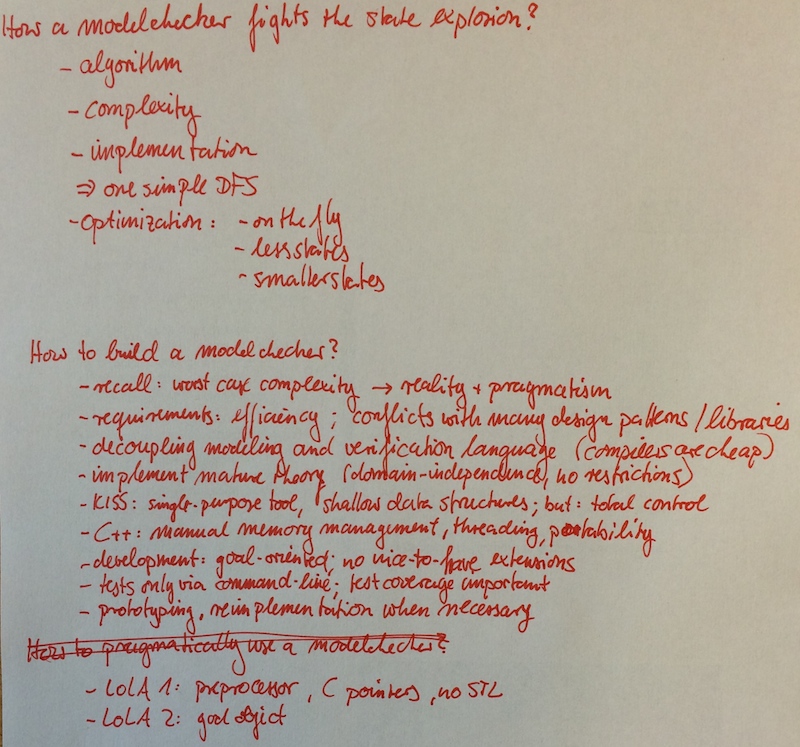 How a modelchecker fights the state explosion?
- algorithm
- complexity
- implementation
⇒ one simple DFS
- Optimization: - on the fly
- less states
- smaller states
How to build a modelchecker?
- recall: worst case complexity → reality + pragmatism
- requirements: efficiency; conflicts with many design patterns/libraries
- decoupling modeling and verification language (compilers are cheap)
- implement mature theory (domain-independence, no restrictions)
- KISS: single-purpose tool, shallow data structures; but: total control
- C++: manual memory management, threading, portability
- development: goal-oriented; no nice-to-have extensions
- tests only via command-line; test coverage important
- prototyping, reimplementation when necessary
How to pragmatically use a modelchecker?
- LoLA 1: preprocessor, C pointers, no STL
- LoLA 2: goal object